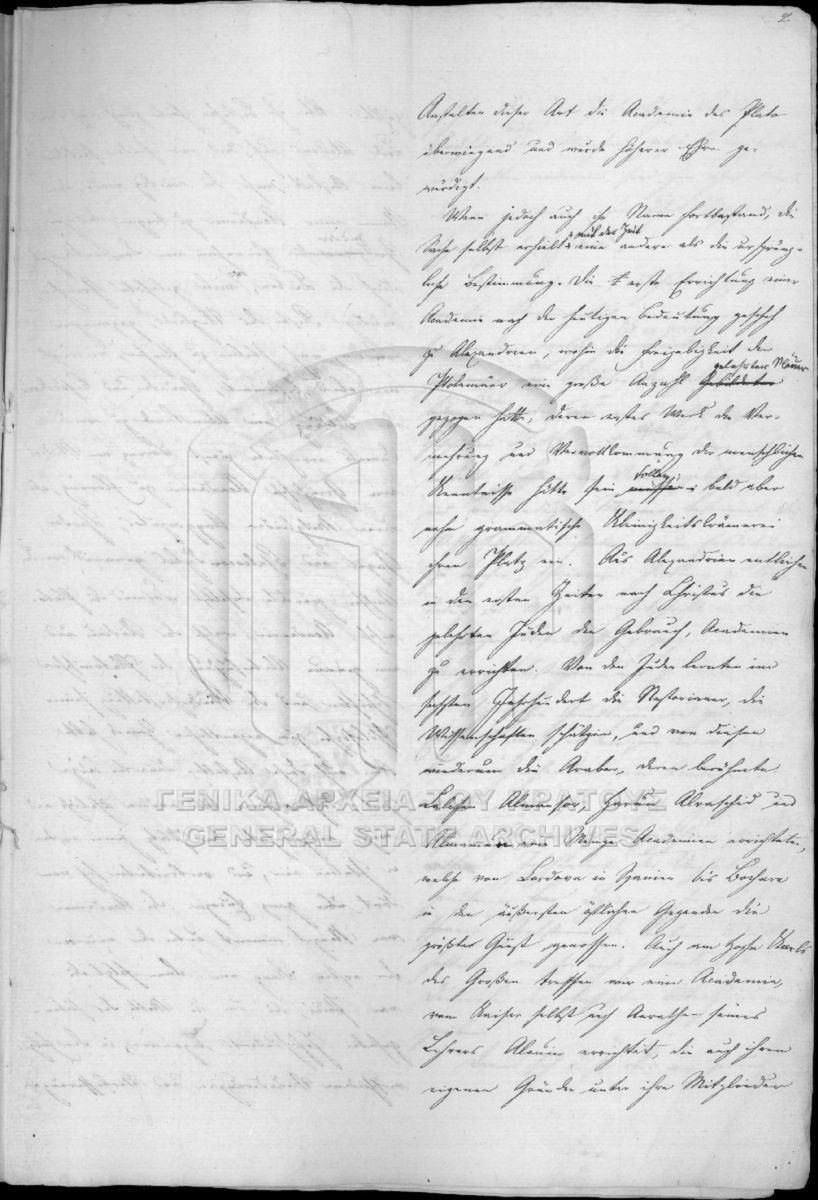 2.
Anstalten dieser Art die Academie des Plato
überwiegend und wurde höherer Ehre ge-
würdigt.
Wenn jedoch auch ihr Name fortbestand, die
mit der Zeit
Sache selbst erhielt eine andere als die ursprüng-
liche Bestimmung. Die erste Errichtung einer
Academie nach der heutigen Bedeutung geschah
zu Alexandrien, wohin die Freigebigkeit der
gelehrter Männer
Ptolemäer eine große Anzahl Gebildeter
gezogen hatte, deren erstes Werk die Ver-
mehrung und Vervollkommnung der menschlichen
sollen
Kenntnisse hätte sein müssen; bald aber
nahm grammatische Kleinigkeitskrämerei
ihren Platz ein. Aus Alexandrien entliehen
in den ersten Zeiten nach Christus die
gelehrten Juden den Gebrauch, Academien
zu errichten. Von den Juden lernten im
sechsten Jahrhundert die Nestorianer, die
Wissenschaften schätzen, und von diesen
wiederum die Araber, deren berühmte
ΓΕΝΙΚΑ ΑΡΧΕΙΑ ΤΟΥ ΚΡΑΤΟΥΣ
Califen Almansor, Harun Alraschid und
GENERAL STATE ARCHIVES
Almamun eine Menge Academien errichteten,
welche von Cordova in Spanien bis Bochara
in den äußersten östlichen Gegenden die
größte Gunst genossen. Auch am Hofe Karls
des Großen treffen wir eine Academie,
vom Kaiser selbst auf Anrathen seines
Lehrers Alcuin errichtet, die auch ihren
eigenen Gründer unter ihre Mitglieder